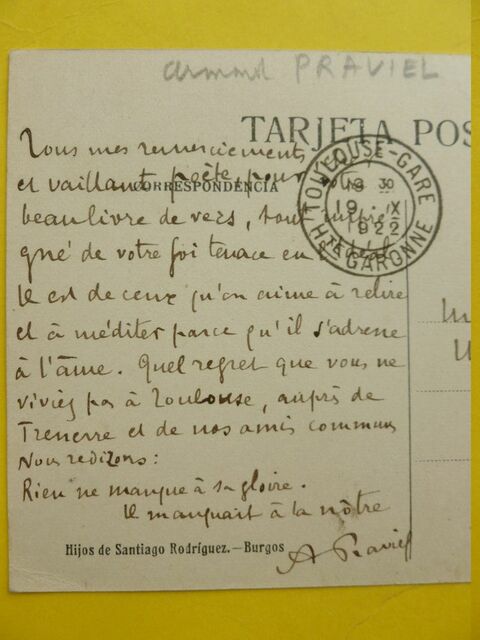 Armand PRAVIEL
TARJETA POS
TOULOUSE-GARE
19 30
19 - IX
1922
Hte GARONNE
CORRESPONDENCIA
Tous mes remerciements
et vaillant poète, pour
beau livre de vers, tout impré-
gné de votre foi tenace en l'Idéal
Il est de ceux qu'on aime à relire
et à méditer parce qu'il s'adresse
à l'âme. Quel regret que vous ne
viviez pas à Toulouse, auprès de
et de nos amis communs
Nous redirons :
Rien ne manque à sa gloire.
Il manquait à la nôtre
A Praviel
Hijos de Santiago Rodríguez.—Burgos